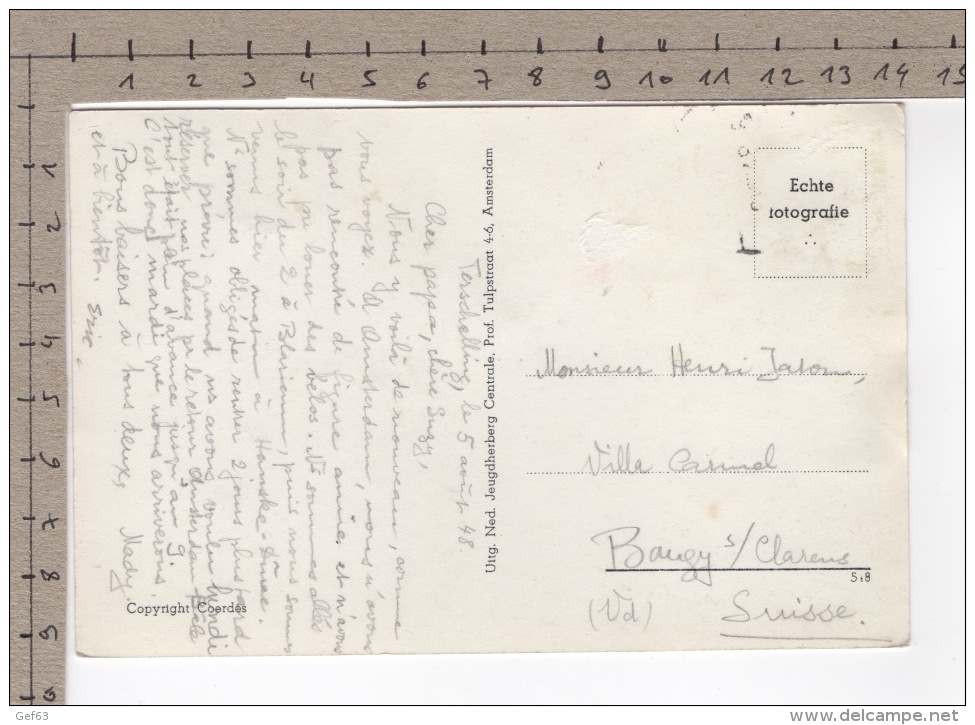 1 2 3 4 5 6 7 8 9 10 11 12 13 14 15
1
2
3
4
5
6
7
8
9
Terschelling, le 5 août 48.
Cher papa, chère Suzy,
Nous y voilà de nouveau, comme
vous voyez. A Amsterdam, nous n'avons
pas rencontré de figure amie et n'avons
pas pu louer des vélos. Ns sommes allés
le soir du 2 à Blaricum, puis nous sommes
venus hier matin à
Ns sommes obligés de rentrer 2 jours plus tard
que prévu; quand ns avons voulu lundi
réserver nos places pr le retour Amsterdam-Bâle
tout était plein d'avance jusqu'au 9.
C'est donc mardi que nous arriverons.
Bons baisers à tous deux,
et à bientôt. Eric - Mady.
Copyright Coerdès
Uitg. Ned. Jeugdherberg Centrale, Prof. Tulpstraat 4-6, Amsterdam
Echte
fotografie
Monsieur Henri Jaton,
Villa Carmel
Baugy s/Clarens
5t8
(Vd) Suisse.
Gef63
http://www.delcampe.net